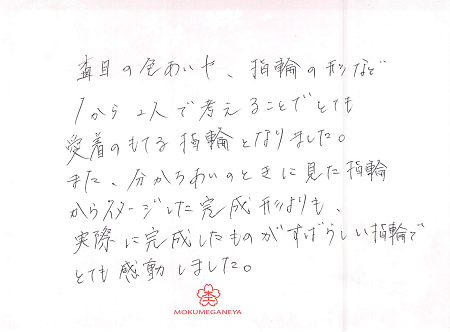 杢目の色あいや、指輪の形など
1から2人で考えることでとても
愛着のもてる指輪となりました。
また、分かちあいのときに見た指輪
からイメージした完成形よりも、
実際に完成したものがすばらしい指輪で
とても感動しました。
MOKUMEGANEYA